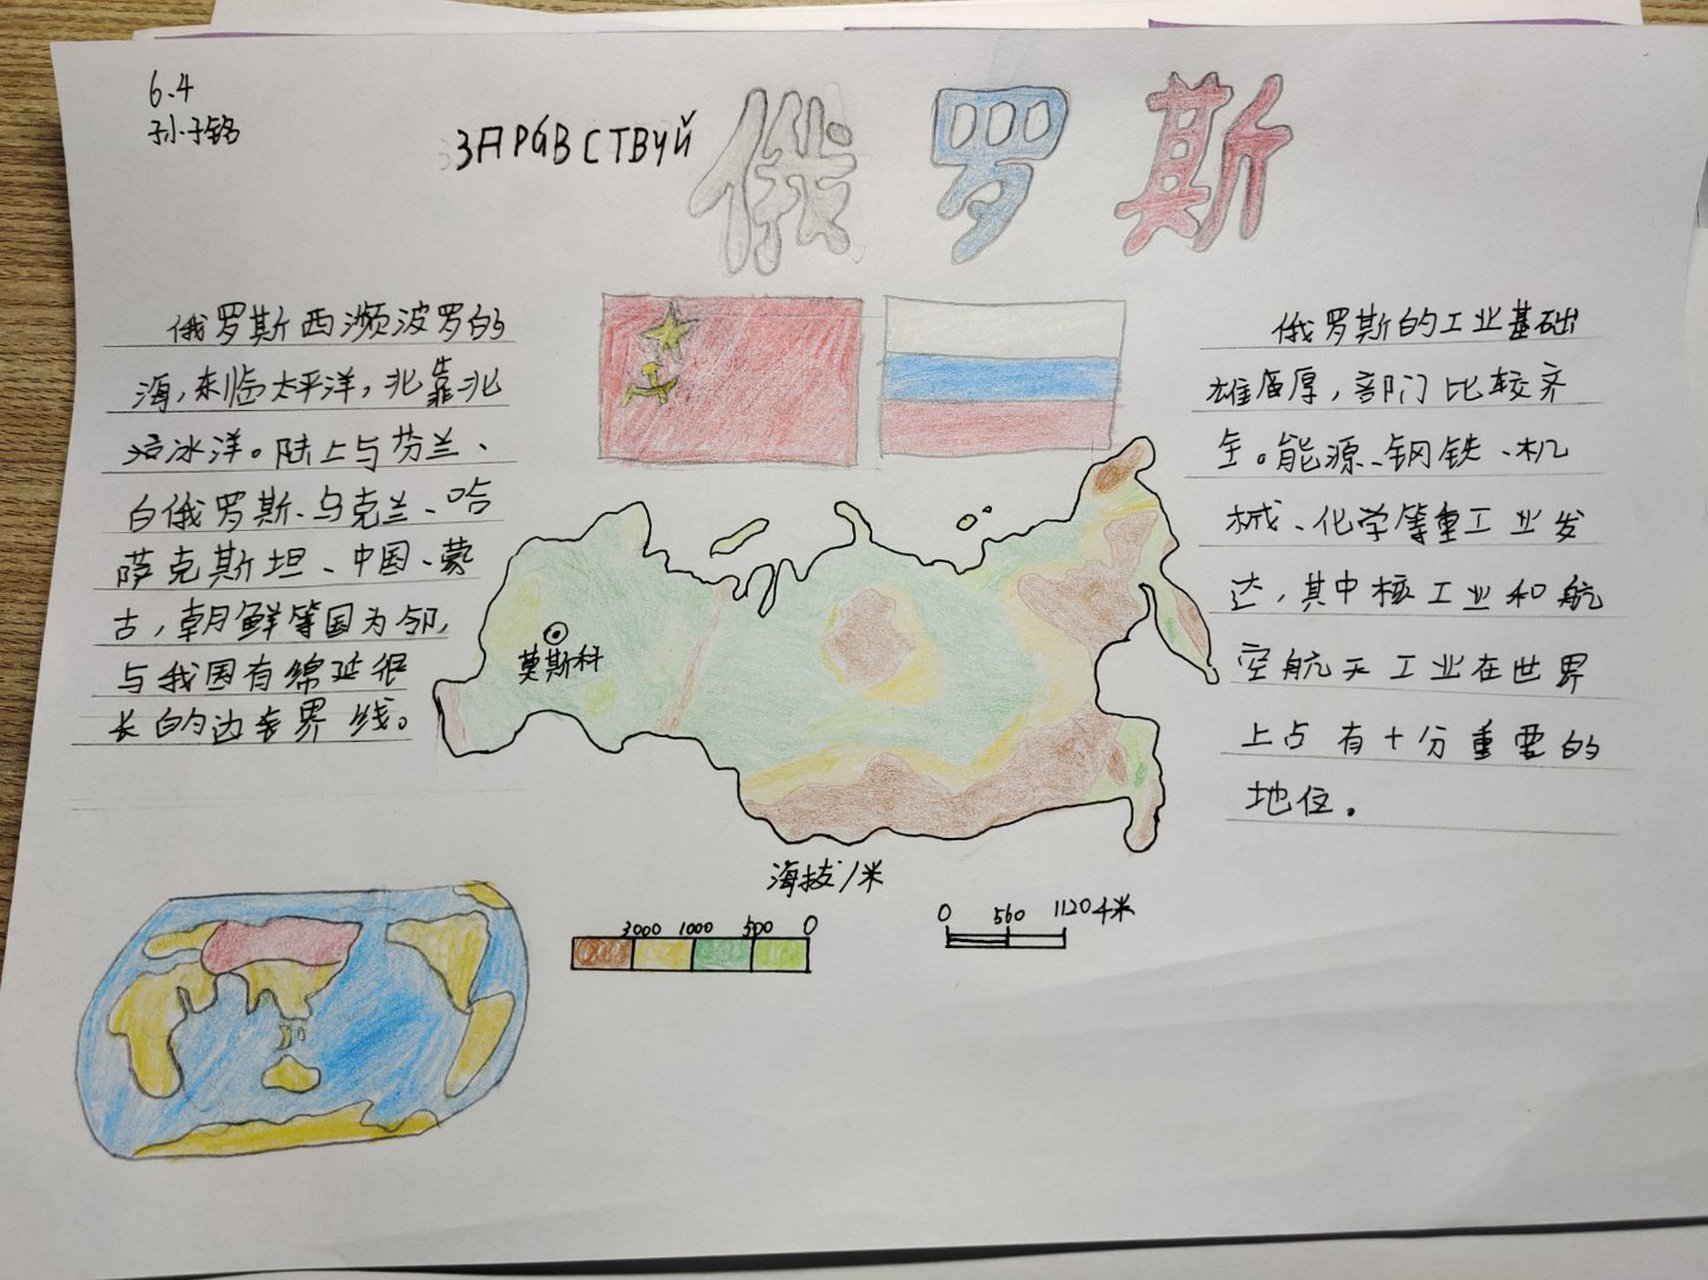 6.4
孙子铭
ЗДРАВСТВУЙ
俄罗斯
俄罗斯西濒波罗的
海,东临太平洋,北靠北
冰洋。陆上与芬兰、
白俄罗斯、乌克兰、哈
萨克斯坦、中国、蒙
古,朝鲜等国为邻,
与我国有绵延很
长的边界线。
俄罗斯的工业基础
雄厚,部门比较齐
全。能源、钢铁、机
械、化学等重工业发
达,其中核工业和航
空航天工业在世界
上占有十分重要的
地位。
莫斯科
海拔/米
3000 1000 500 0
0 560 1120千米